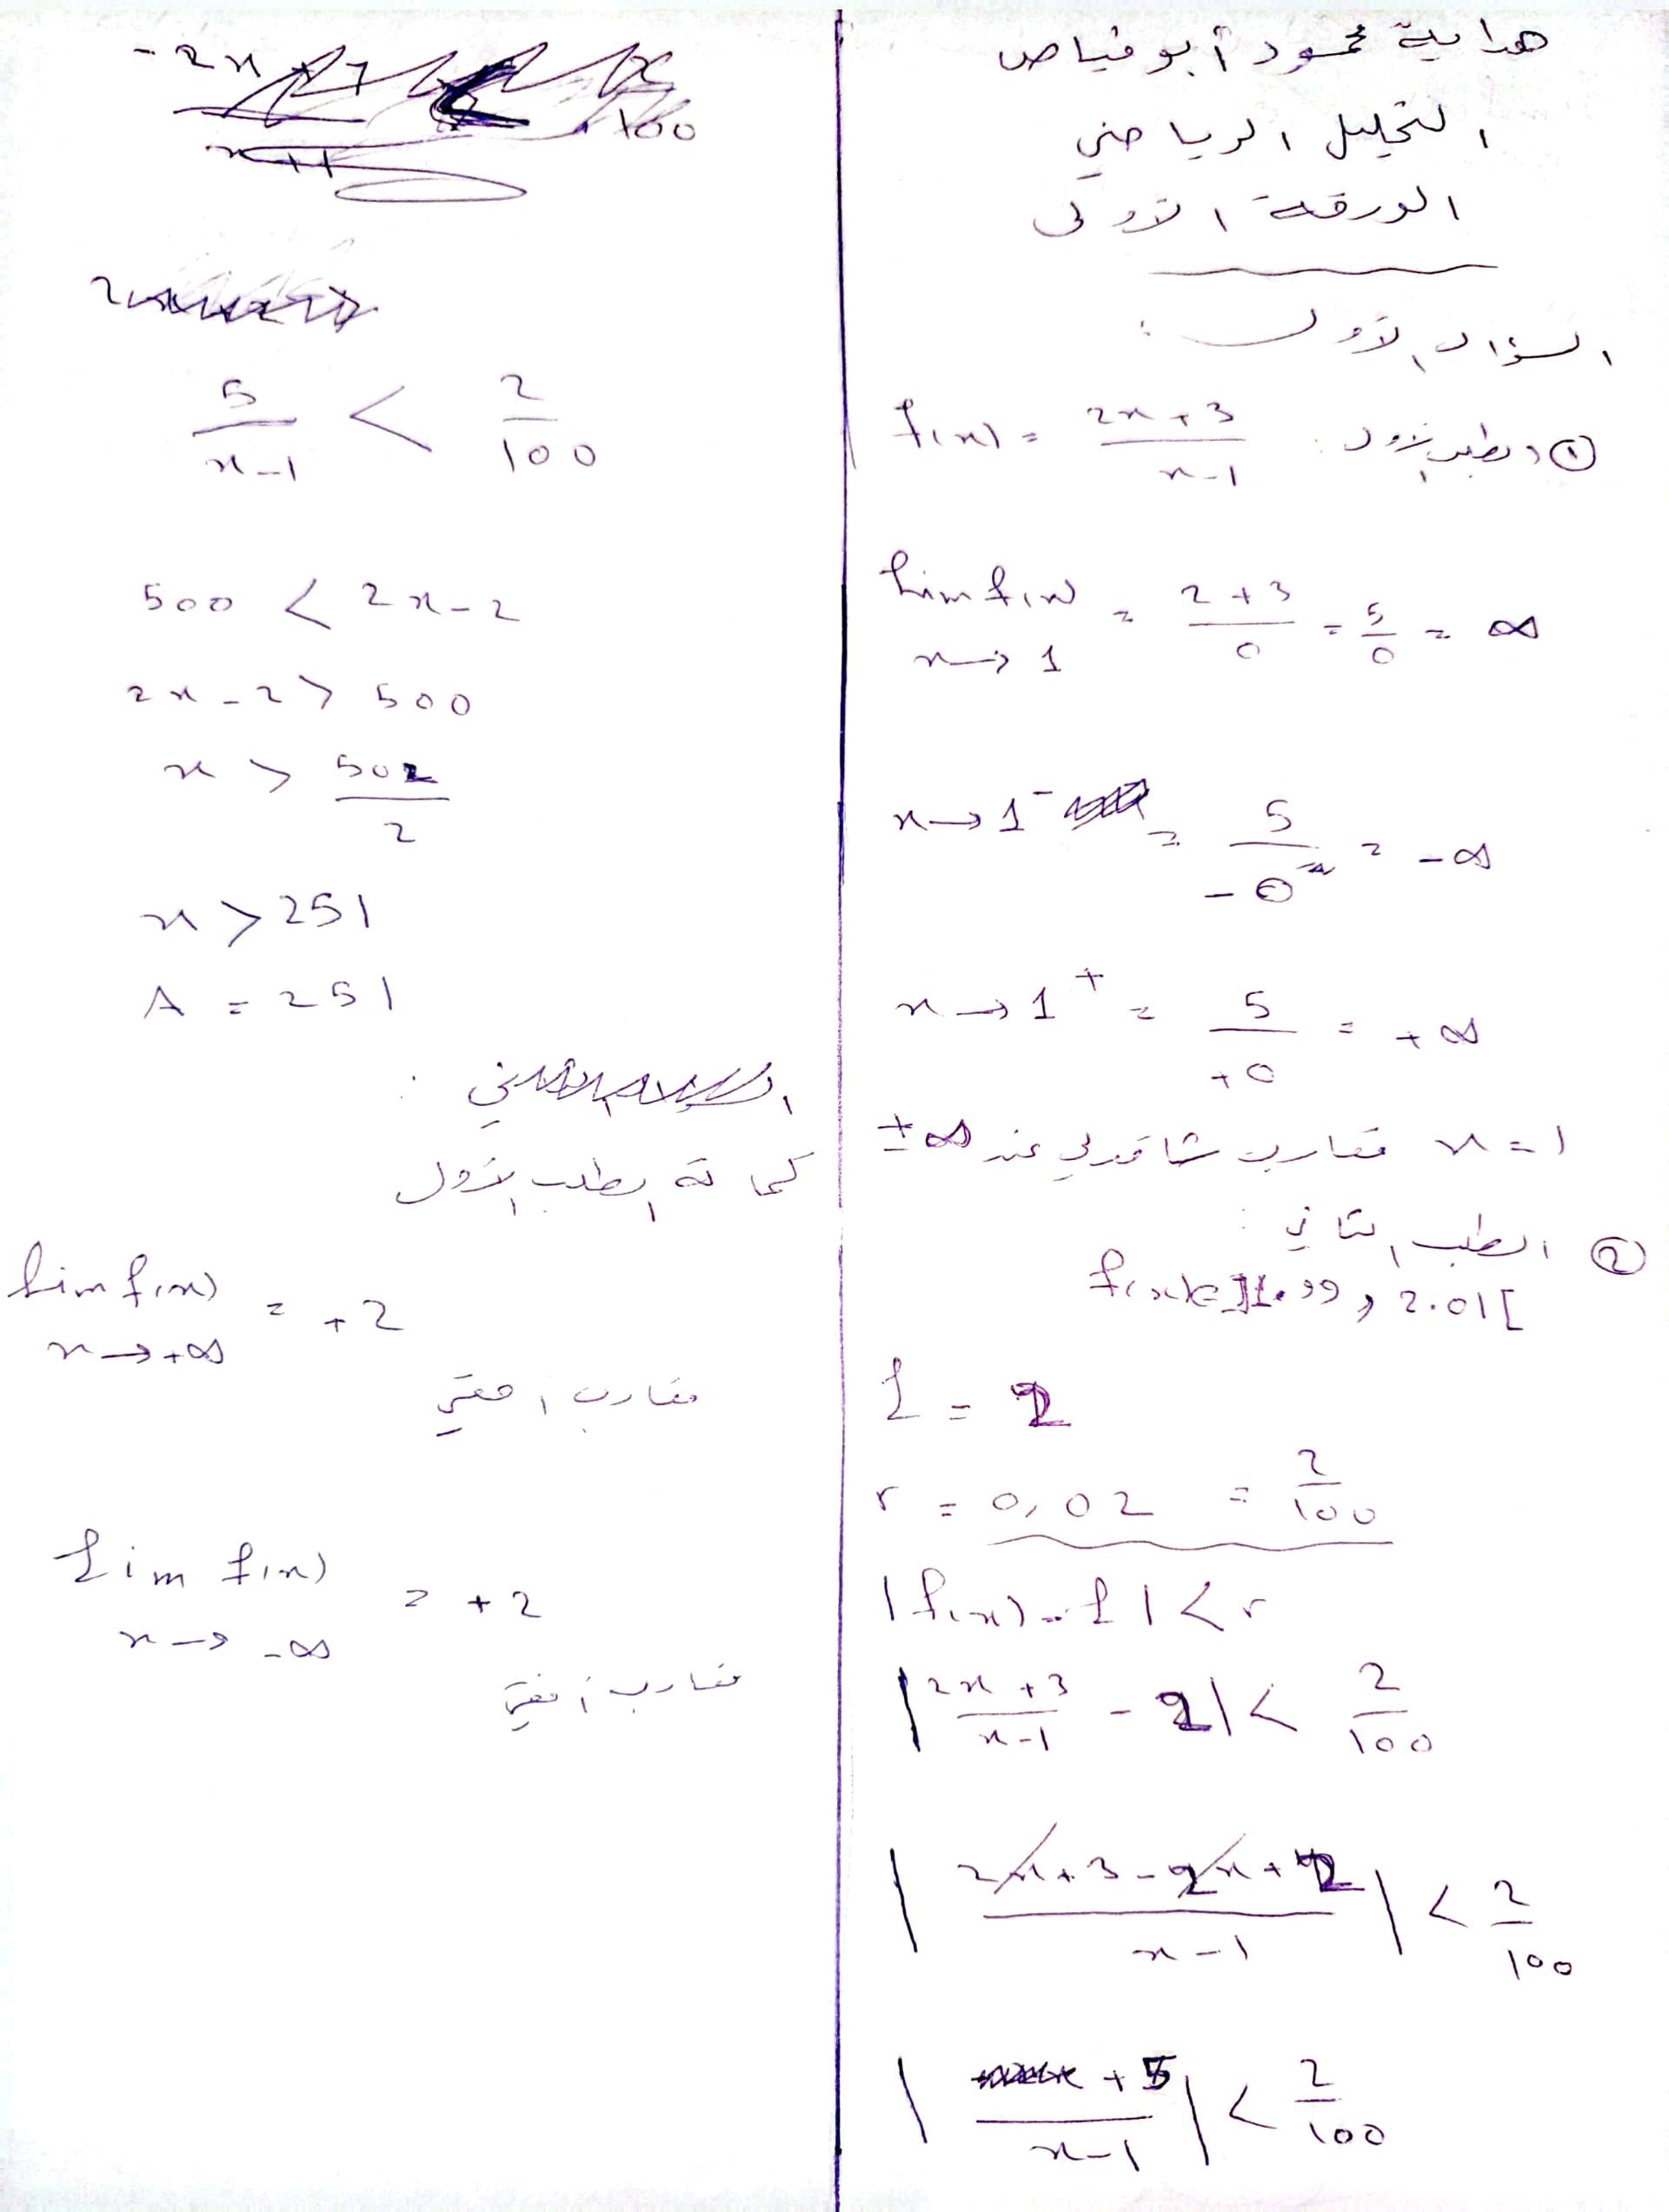 هداية محمود أبو فياض
التحليل الرياضي
الورقة الأولى
السؤال الأول :
① الطلب الأول : f(x) = (2x + 3)/(x - 1)
lim f(x) x→1 = (2 + 3)/0 = 5/0 = ∞
x→1⁻ = 5/-0 = -∞
x→1⁺ = 5/+0 = +∞
x = 1 مقارب شاقولي عند ±∞
② الطلب الثاني :
f(x)∈]1.99, 2.01[
ℓ = 2
r = 0,02 = 2/100
|f(x) - ℓ| < r
|(2x + 3)/(x - 1) - 2| < 2/100
|(2x + 3 - 2x + 2)/(x - 1)| < 2/100
|+5/(x - 1)| < 2/100
5/(x - 1) < 2/100
500 < 2x - 2
2x - 2 > 500
x > 502/2
x > 251
A = 251
الطلب الأول
lim f(x) x→+∞ = +2
مقارب افقي
lim f(x) x→-∞ = +2
مقارب أفقي